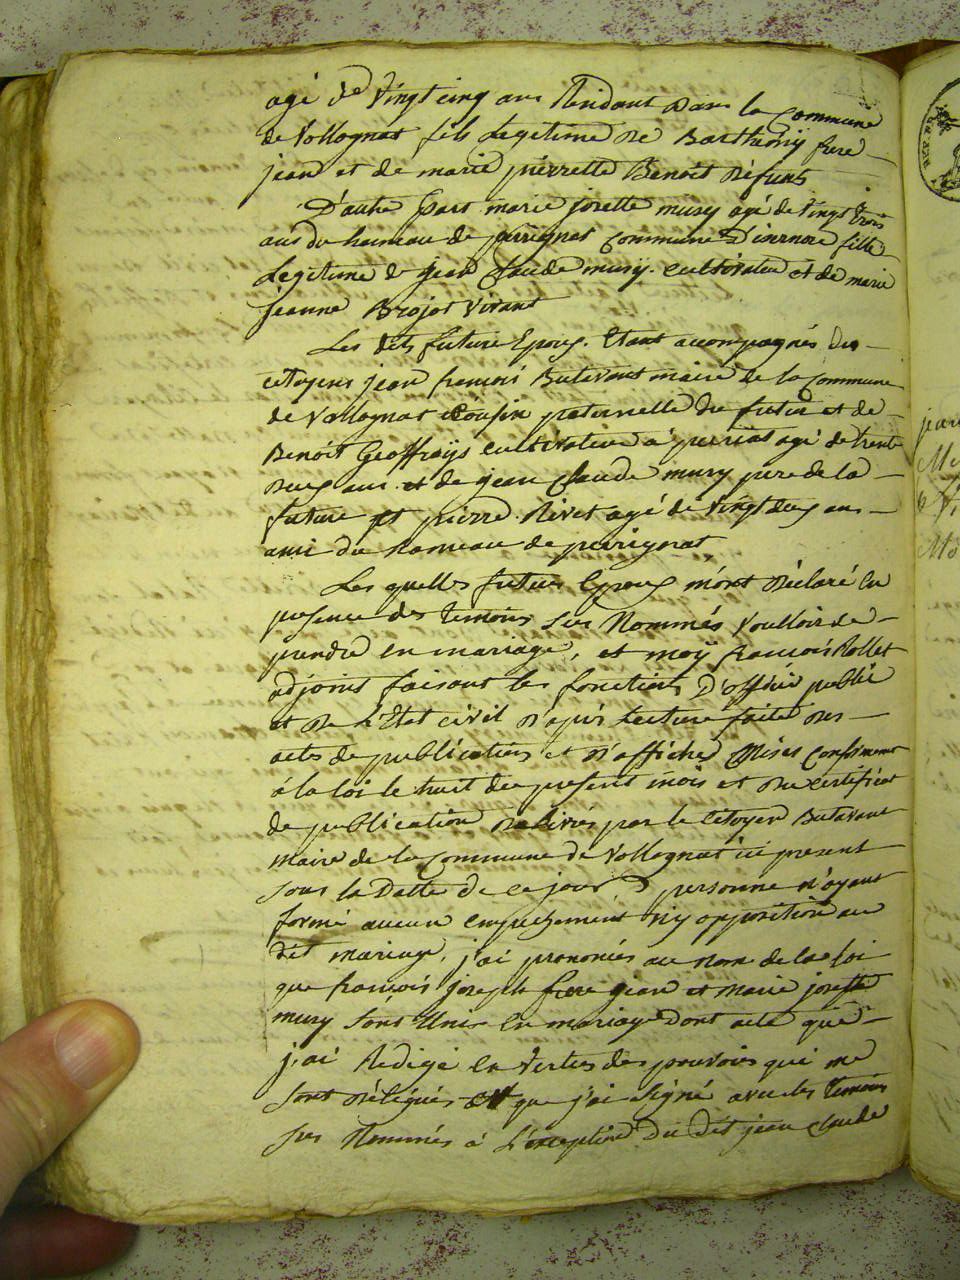 agé de vingt cinq ans Residant dans la Commune
de Vollognat fils Legitime de Barthemy frere
jean et de marie pierrette Benoit défunts
D'autre part marie josette mury agé de vingt trois
ans du hameau de perrignat commune d'isernore fille
Legitime de jean Claude mury cultivateur et de marie
jeanne Brojot vivant
Les dits future Epoux Etant accompagnés des
citoyens jean francois Butavant maire de la Commune
de Vollognat Cousin paternelle du futur et de
Benoit Geoffrays cultivateur a perriat agé de trente
deux ans et de jean Claude mury pere de la
future et pierre Rivet agé de vingt deux ans
ami du hameau de perrignat
Les quelles futures Epoux m'ont déclaré En
presence des temoins Sus Nommés voulloir se
prendre en mariage, et moy francois Rollet
adjoint faisant les fonctions D'officié public
et de L'Etat civil d'apres Lecture faite des
actes de publications et d'affiches Mises Conforment
á la loi le huit du present mois et du certificat
de publication delivrés par le Citoyen Butavant
maire de la Commune de Vollognat ici present
sous la Datte de ce jour personne n'ayant
formé aucun empechement ny opposition au
dit mariage, j'ai prononcés au nom de la loi
que francois joseph frere jean et marie josette
mury sont unis en mariage Dont acte que
j'ai Redigé en vertus des pouvoirs qui me
sont délégués et que j'ai signé avec les temoins
sus Nommés á L'exception du dit jean claude
REP. FR